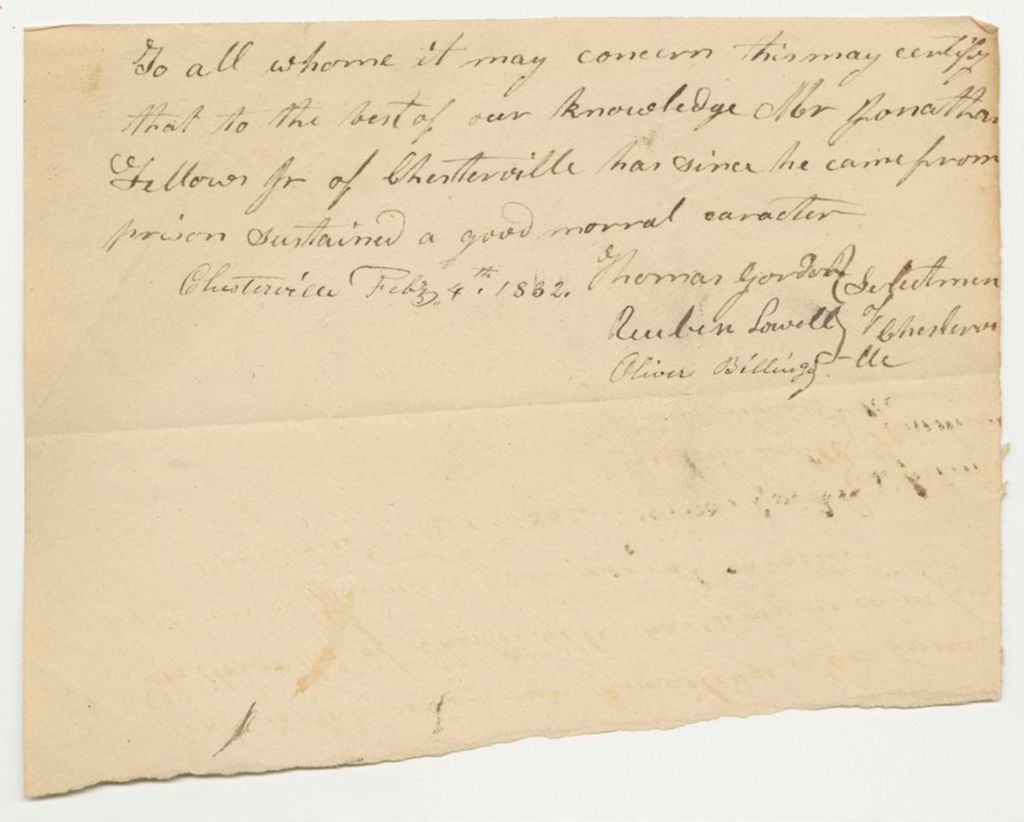 To all whome it may concern this may certify
that to the best of our knowledge Mr Jonathan
Fellows Jr of Chesterville has since he came from
prison sustained a good morral caracter
Chesterville Feby 4th. 1832. Thomas Gordon } Selectmen
Reuben Lowell } of Chestervi
Oliver Billings } -lle